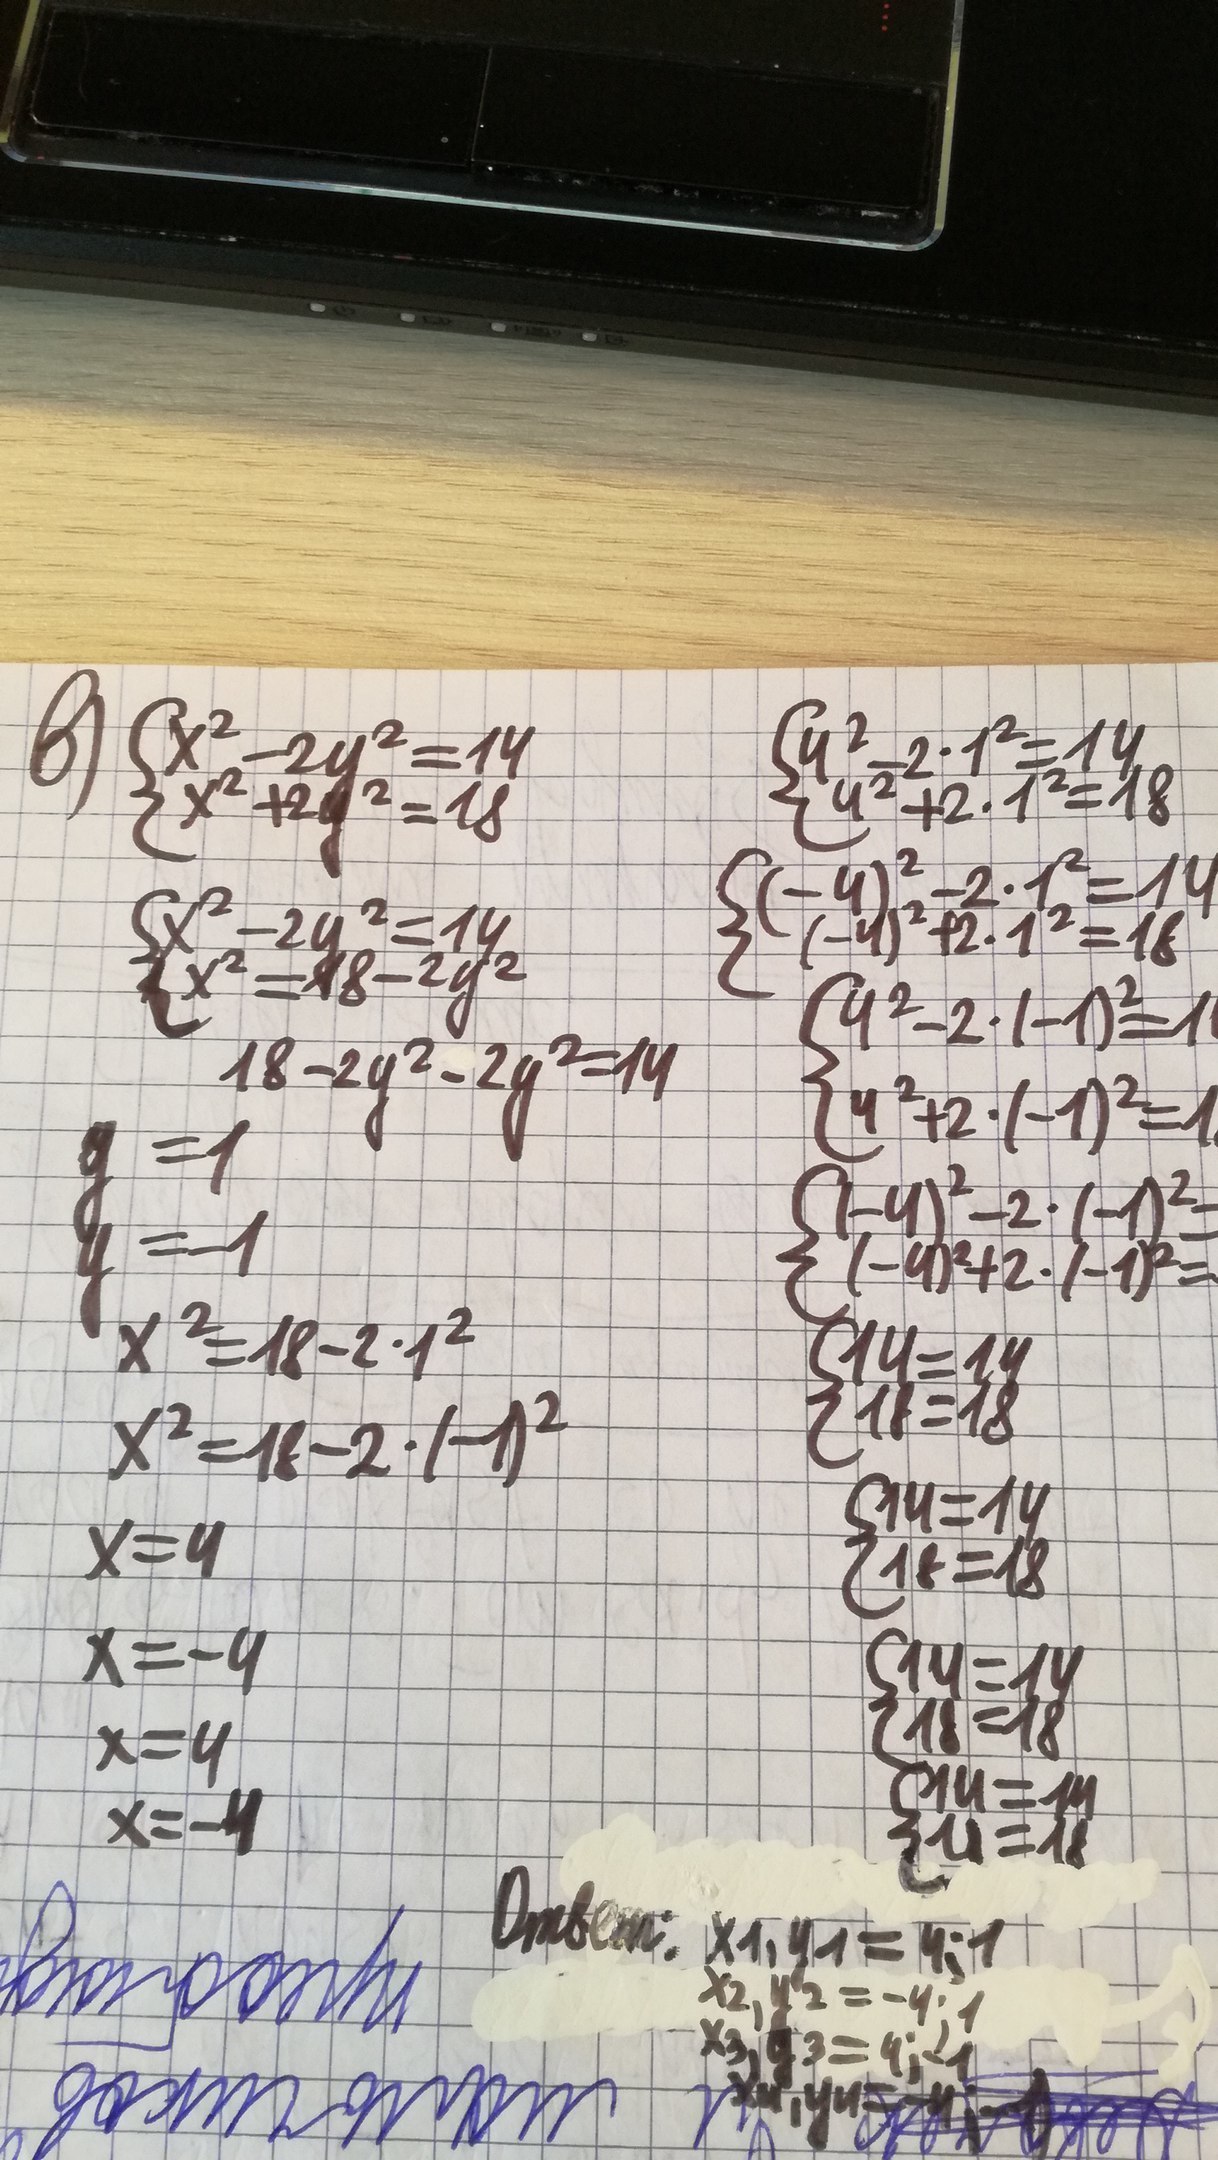 в) {x² - 2y² = 14
{x² + 2y² = 18
{x² - 2y² = 14
{x² = 18 - 2y²
18 - 2y² - 2y² = 14
y = 1
y = -1
x² = 18 - 2·1²
x² = 18 - 2·(-1)²
x = 4
x = -4
x = 4
x = -4
{4² - 2·1² = 14
{4² + 2·1² = 18
{(-4)² - 2·1² = 14
{(-4)² + 2·1² = 18
{4² - 2·(-1)² = 1
{4² + 2·(-1)² = 1
{(-4)² - 2·(-1)² =
{(-4)² + 2·(-1)² =
{14 = 14
{18 = 18
{14 = 14
{18 = 18
{14 = 14
{18 = 18
{14 = 14
{18 = 18
Ответ: x1, y1 = 4; 1
x2, y2 = -4; 1
x3, y3 = 4; -1
x4, y4 = -4; -1